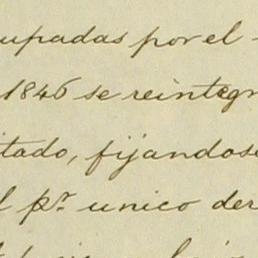 upadas por el
1846 se reintegr
tado, fijandose
l pr. unico der